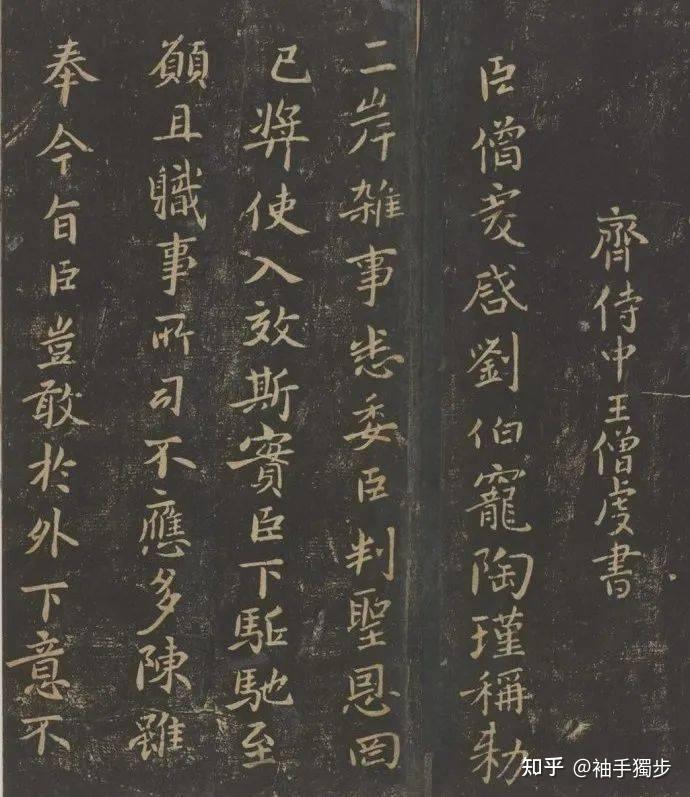 齊侍中王僧虔書
臣僧虔啓劉伯寵陶瑾稱勑
二岸雜事悉委臣判聖恩罔
已弊使入效斯實臣下駈馳至
願且職事所司不應多陳雖
奉今旨臣豈敢於外下意不
知乎 @袖手獨步